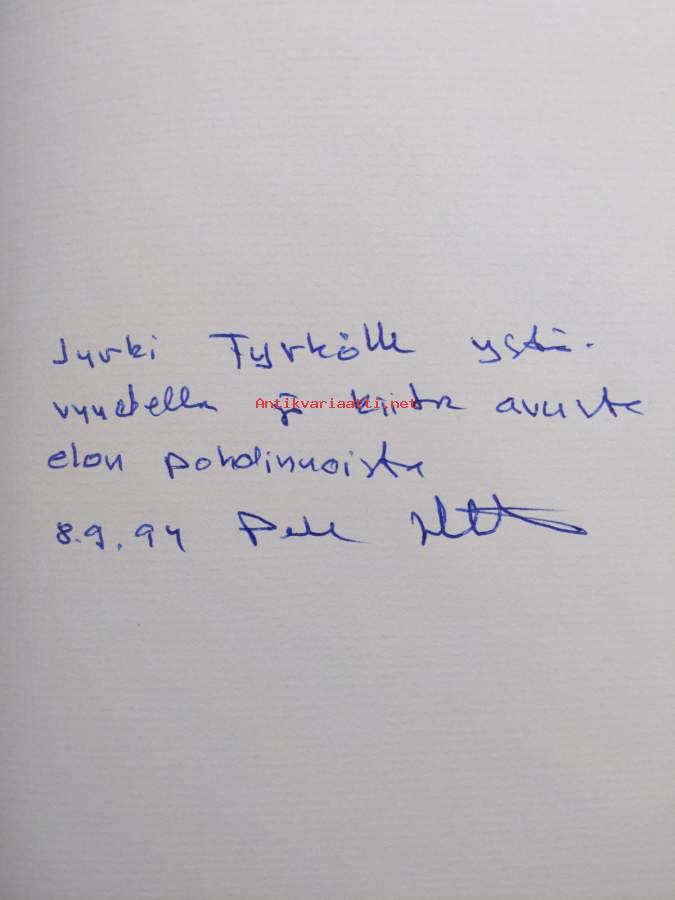 Jyrki Tyrkölle ystä-
vyydellä ja kiitos avusta
elon pohdinnoista
8.9.94
Antikvariaatti.net